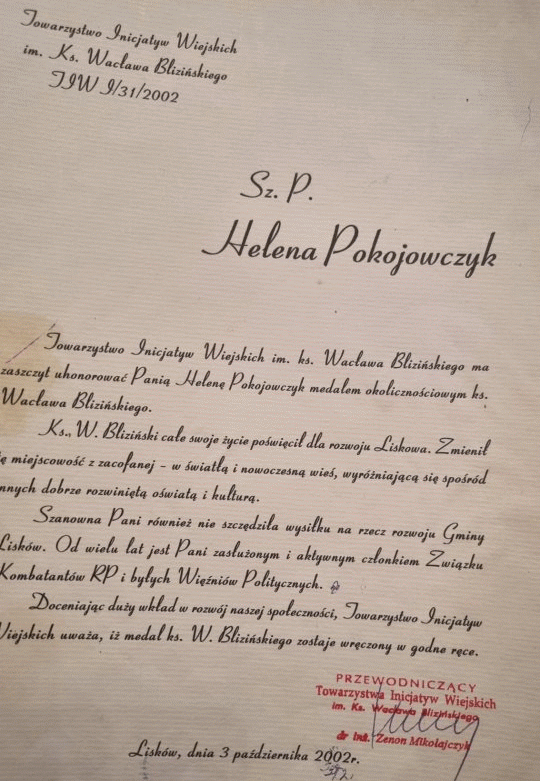 Towarzystwo Inicjatyw Wiejskich
im. Ks. Wacława Blizińskiego
TIW I/31/2002
Sz. P.
Helena Pokojowczyk
Towarzystwo Inicjatyw Wiejskich im. ks. Wacława Blizińskiego ma
zaszczyt uhonorować Panią Helenę Pokojowczyk medalem okolicznościowym ks.
Wacława Blizińskiego.
Ks., W. Bliziński całe swoje życie poświęcił dla rozwoju Liskowa. Zmienił
tę miejscowość z zacofanej - w światłą i nowoczesną wieś, wyróżniającą się spośród
innych dobrze rozwiniętą oświatą i kulturą.
Szanowna Pani również nie szczędziła wysiłku na rzecz rozwoju Gminy
Lisków. Od wielu lat jest Pani zasłużonym i aktywnym członkiem Związku
Kombatantów RP i byłych Więźniów Politycznych.
Doceniając duży wkład w rozwój naszej społeczności, Towarzystwo Inicjatyw
Wiejskich uważa, iż medal ks. W. Blizińskiego zostaje wręczony w godne ręce.
PRZEWODNICZĄCY
Towarzystwa Inicjatyw Wiejskich
im. Ks. Wacława Blizińskiego
dr inż. Zenon Mikołajczyk
Lisków, dnia 3 października 2002r.